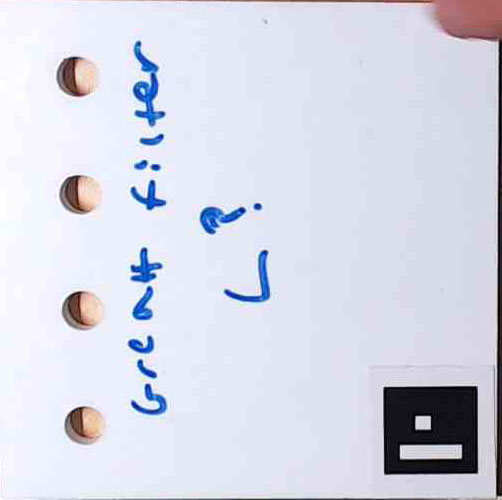 Great filter
L ?